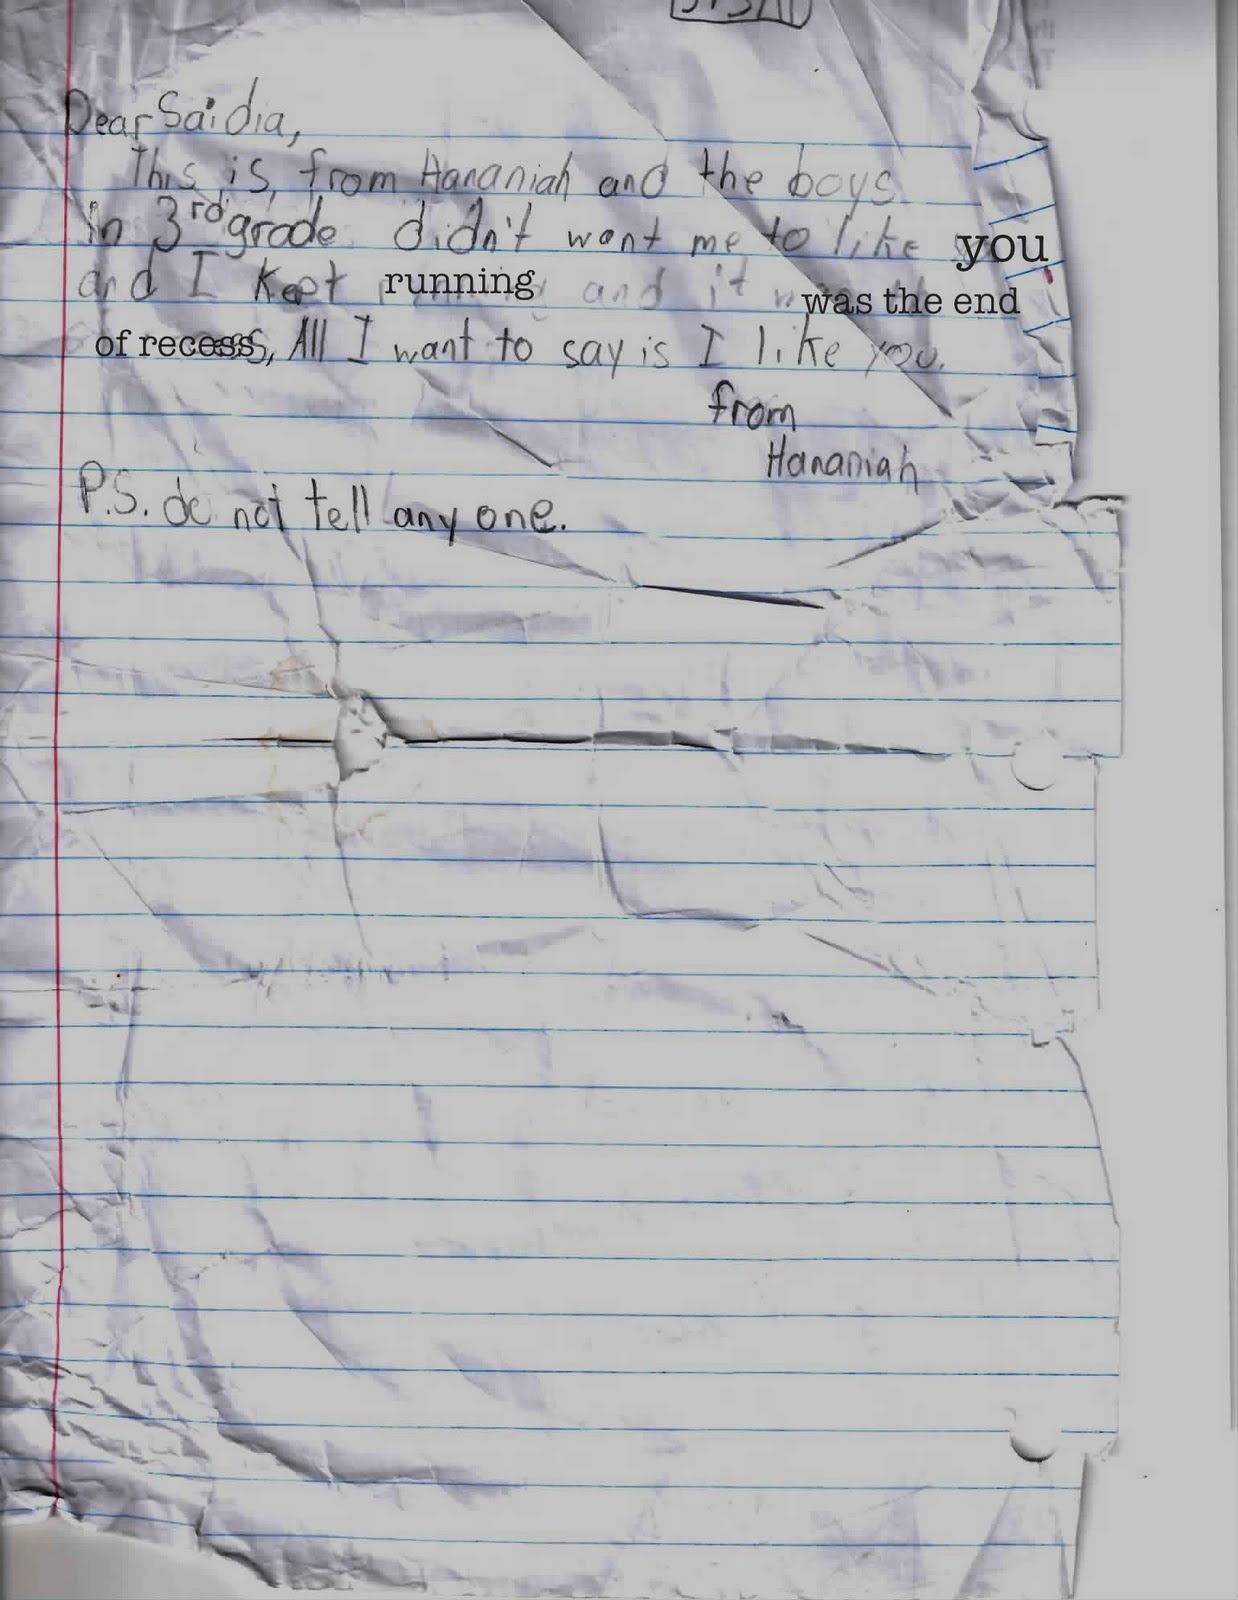 Dear Saidia,
This is from Hananiah and the boys
in 3rd grade didn't want me to like you
and I kept running and it was the end
of recess, All I want to say is I like you.
from
Hananiah
P.S. do not tell any one.